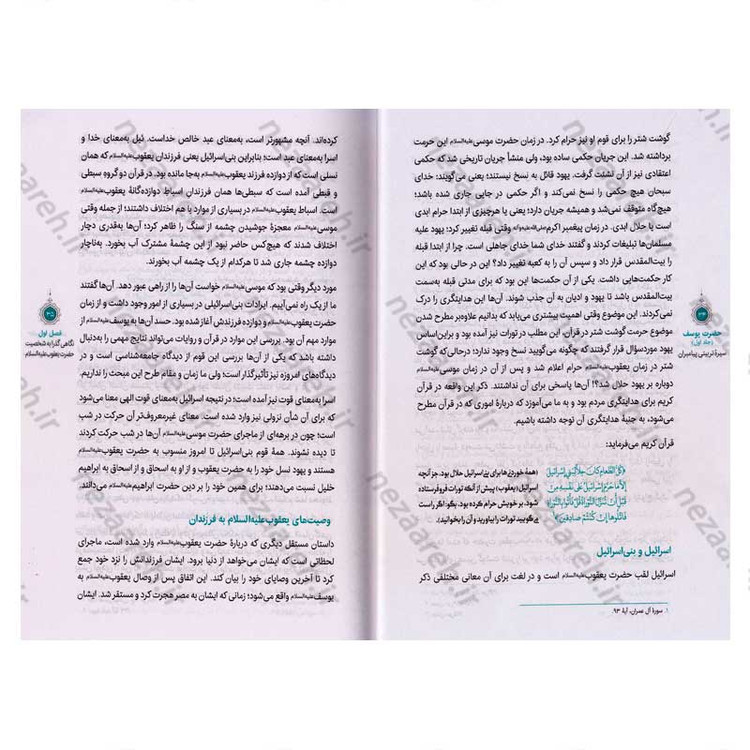 گوشت شتر را برای قوم او نیز حرام کرد. در زمان حضرت موسی علیه‌السلام این حرمت
برداشته شد. این جریان حکمی ساده بود، ولی منشأ جریان تاریخی شد که حکمی
اعتقادی نیز از آن نشئت گرفت. یهود قائل به نسخ نیستند؛ یعنی می‌گویند: خدای
سبحان هیچ حکمی را نسخ نمی‌کند و اگر حکمی در جایی جاری شده باشد؛
هیچ‌گاه متوقف نمی‌شود و همیشه جریان دارد؛ یعنی یا هرچیزی از ابتدا حرام ابدی
است یا حلال ابدی. در زمان پیغمبر اکرم صلی‌الله‌علیه‌وآله وقتی قبله تغییر کرد؛ یهود علیه
مسلمان‌ها تبلیغات کردند و گفتند خدای شما خدای جاهلی است. چرا از ابتدا قبله
بیت‌المقدس قرار داد و سپس آن را به کعبه تغییر داد؟ این در حالی بود که این
کار حکمت‌هایی داشت. یکی از آن حکمت‌ها این بود که برای مدتی قبله به سمت
بیت‌المقدس باشد تا یهود و ادیان به آن جذب شوند. آن‌ها این هدایتگری را درک
نمی‌کردند. این موضوع وقتی اهمیت بیشتری می‌یابد که بدانیم علاوه‌بر مطرح شدن
موضوع حرمت گوشت شتر در قرآن، این مطلب در تورات نیز بوده و براین‌اساس
یهود موردسؤال قرار گرفتند که چگونه می‌گویید نسخ وجود ندارد؛ درحالی‌که گوشت
شتر در زمان یعقوب علیه‌السلام حرام اعلام شد و پس از آن در زمان موسی علیه‌السلام
دوباره بر یهود حلال شد؟! آن‌ها پاسخی برای آن نداشتند. ذکر این واقعه در قرآن
کریم برای هدایتگری مردم بود و به ما می‌آموزد که دربارهٔ اموری که در قرآن مطرح
می‌شود، به جنبهٔ هدایتگری آن توجه داشته باشیم.
قرآن کریم می‌فرماید:
﴿كُلُّ الطَّعامِ كانَ حِلاًّ لِبَني‏ إِسْرائيلَ
إِلاَّ ما حَرَّمَ إِسْرائيلُ عَلى‏ نَفْسِهِ مِنْ
قَبْلِ أَنْ تُنَزَّلَ التَّوْراةُ قُلْ فَأْتُوا بِالتَّوْراةِ
فَاتْلُوها إِنْ كُنْتُمْ صادِقينَ﴾
(همهٔ خوردنی‌ها برای بنی‌اسرائیل حلال بود، جز آنچه
اسرائیل (یعقوب) پیش از آنکه تورات فروفرستاده
شود، بر خویش حرام کرده بود. بگو: اگر راست
می‌گویید تورات را بیاورید و آن را بخوانید).
اسرائیل و بنی‌اسرائیل
اسرائیل لقب حضرت یعقوب علیه‌السلام است و در لغت برای آن معانی مختلفی ذکر
۱. سورهٔ آل عمران، آیهٔ ۹۳.
حضرت یوسف
(جلد اول)
سیرهٔ تربیتی پیامبران
کرده‌اند. آنچه مشهورتر است، به‌معنای عبد خالص خداست. ئیل به‌معنای خدا و
اسرا به‌معنای عبد است؛ بنابراین بنی‌اسرائیل یعنی فرزندان یعقوب علیه‌السلام که همان
نسلی است که از دوازده فرزند یعقوب علیه‌السلام به‌جا مانده بود. در قرآن دو گروه سبطی
و قبطی آمده است که سبطی‌ها همان فرزندان اسباط دوازده‌گانهٔ یعقوب علیه‌السلام
است. اسباط یعقوب علیه‌السلام در بسیاری از موارد با هم اختلاف داشتند؛ از جمله وقتی
موسی علیه‌السلام معجزهٔ جوشیدن چشمه از سنگ را ظاهر کرد؛ آن‌ها به‌قدری دچار
اختلاف شدند که هیچ‌کس حاضر نبود از این چشمهٔ مشترک آب بخورد. به‌ناچار
دوازده چشمه جاری شد تا هرکدام از یک چشمه آب بخورند.
مورد دیگر وقتی بود که موسی علیه‌السلام خواست آن‌ها را از راهی عبور دهد. آن‌ها گفتند
ما از یک راه نمی‌آییم. ایرادات بنی‌اسرائیلی در بسیاری از امور وجود داشت و از زمان
حضرت یعقوب علیه‌السلام و دوازده فرزندش آغاز شده بود. حسد آن‌ها به یوسف علیه‌السلام از
موارد مهم آن بود. بررسی این موارد در قرآن و روایات می‌تواند نتایج مهمی را به‌دنبال
داشته باشد که یکی از آن‌ها بررسی این قوم از دیدگاه جامعه‌شناسی است و در
دیدگاه‌های امروزه نیز تأثیرگذار است؛ ولی ما زمان و مقام طرح این مبحث را نداریم.
اسرا به‌معنای قوت نیز آمده است؛ در نتیجه اسرائیل به‌معنای قوت الهی معنا می‌شود
که برای آن شأن نزولی نیز وارد شده است. معنای غیرمعروف‌تر آن حرکت در شب
است؛ چون در برهه‌ای از ماجرای حضرت موسی علیه‌السلام آن‌ها در شب حرکت کردند
تا دیده نشوند. همهٔ قوم بنی‌اسرائیل تا امروز منسوب به حضرت یعقوب علیه‌السلام
هستند و یهود نسل خود را به حضرت یعقوب و از او به اسحاق و از اسحاق به ابراهیم
خلیل نسبت می‌دهند؛ برای همین خود را بر دین حضرت ابراهیم علیه‌السلام می‌دانند.
وصیت‌های یعقوب علیه‌السلام به فرزندان
داستان مستقل دیگری که دربارهٔ حضرت یعقوب علیه‌السلام وارد شده است، ماجرای
لحظاتی است که ایشان می‌خواهد از دنیا برود. ایشان فرزندانش را نزد خود جمع
کرد تا آخرین وصایای خود را بیان کند. این اتفاق پس از وصال یعقوب علیه‌السلام به
یوسف علیه‌السلام واقع می‌شود؛ زمانی که ایشان به مصر هجرت کرد و مستقر شد. ایشان
فصل اول
نگاهی گذرا به شخصیت
حضرت یعقوب علیه‌السلام
nezaareh.ir